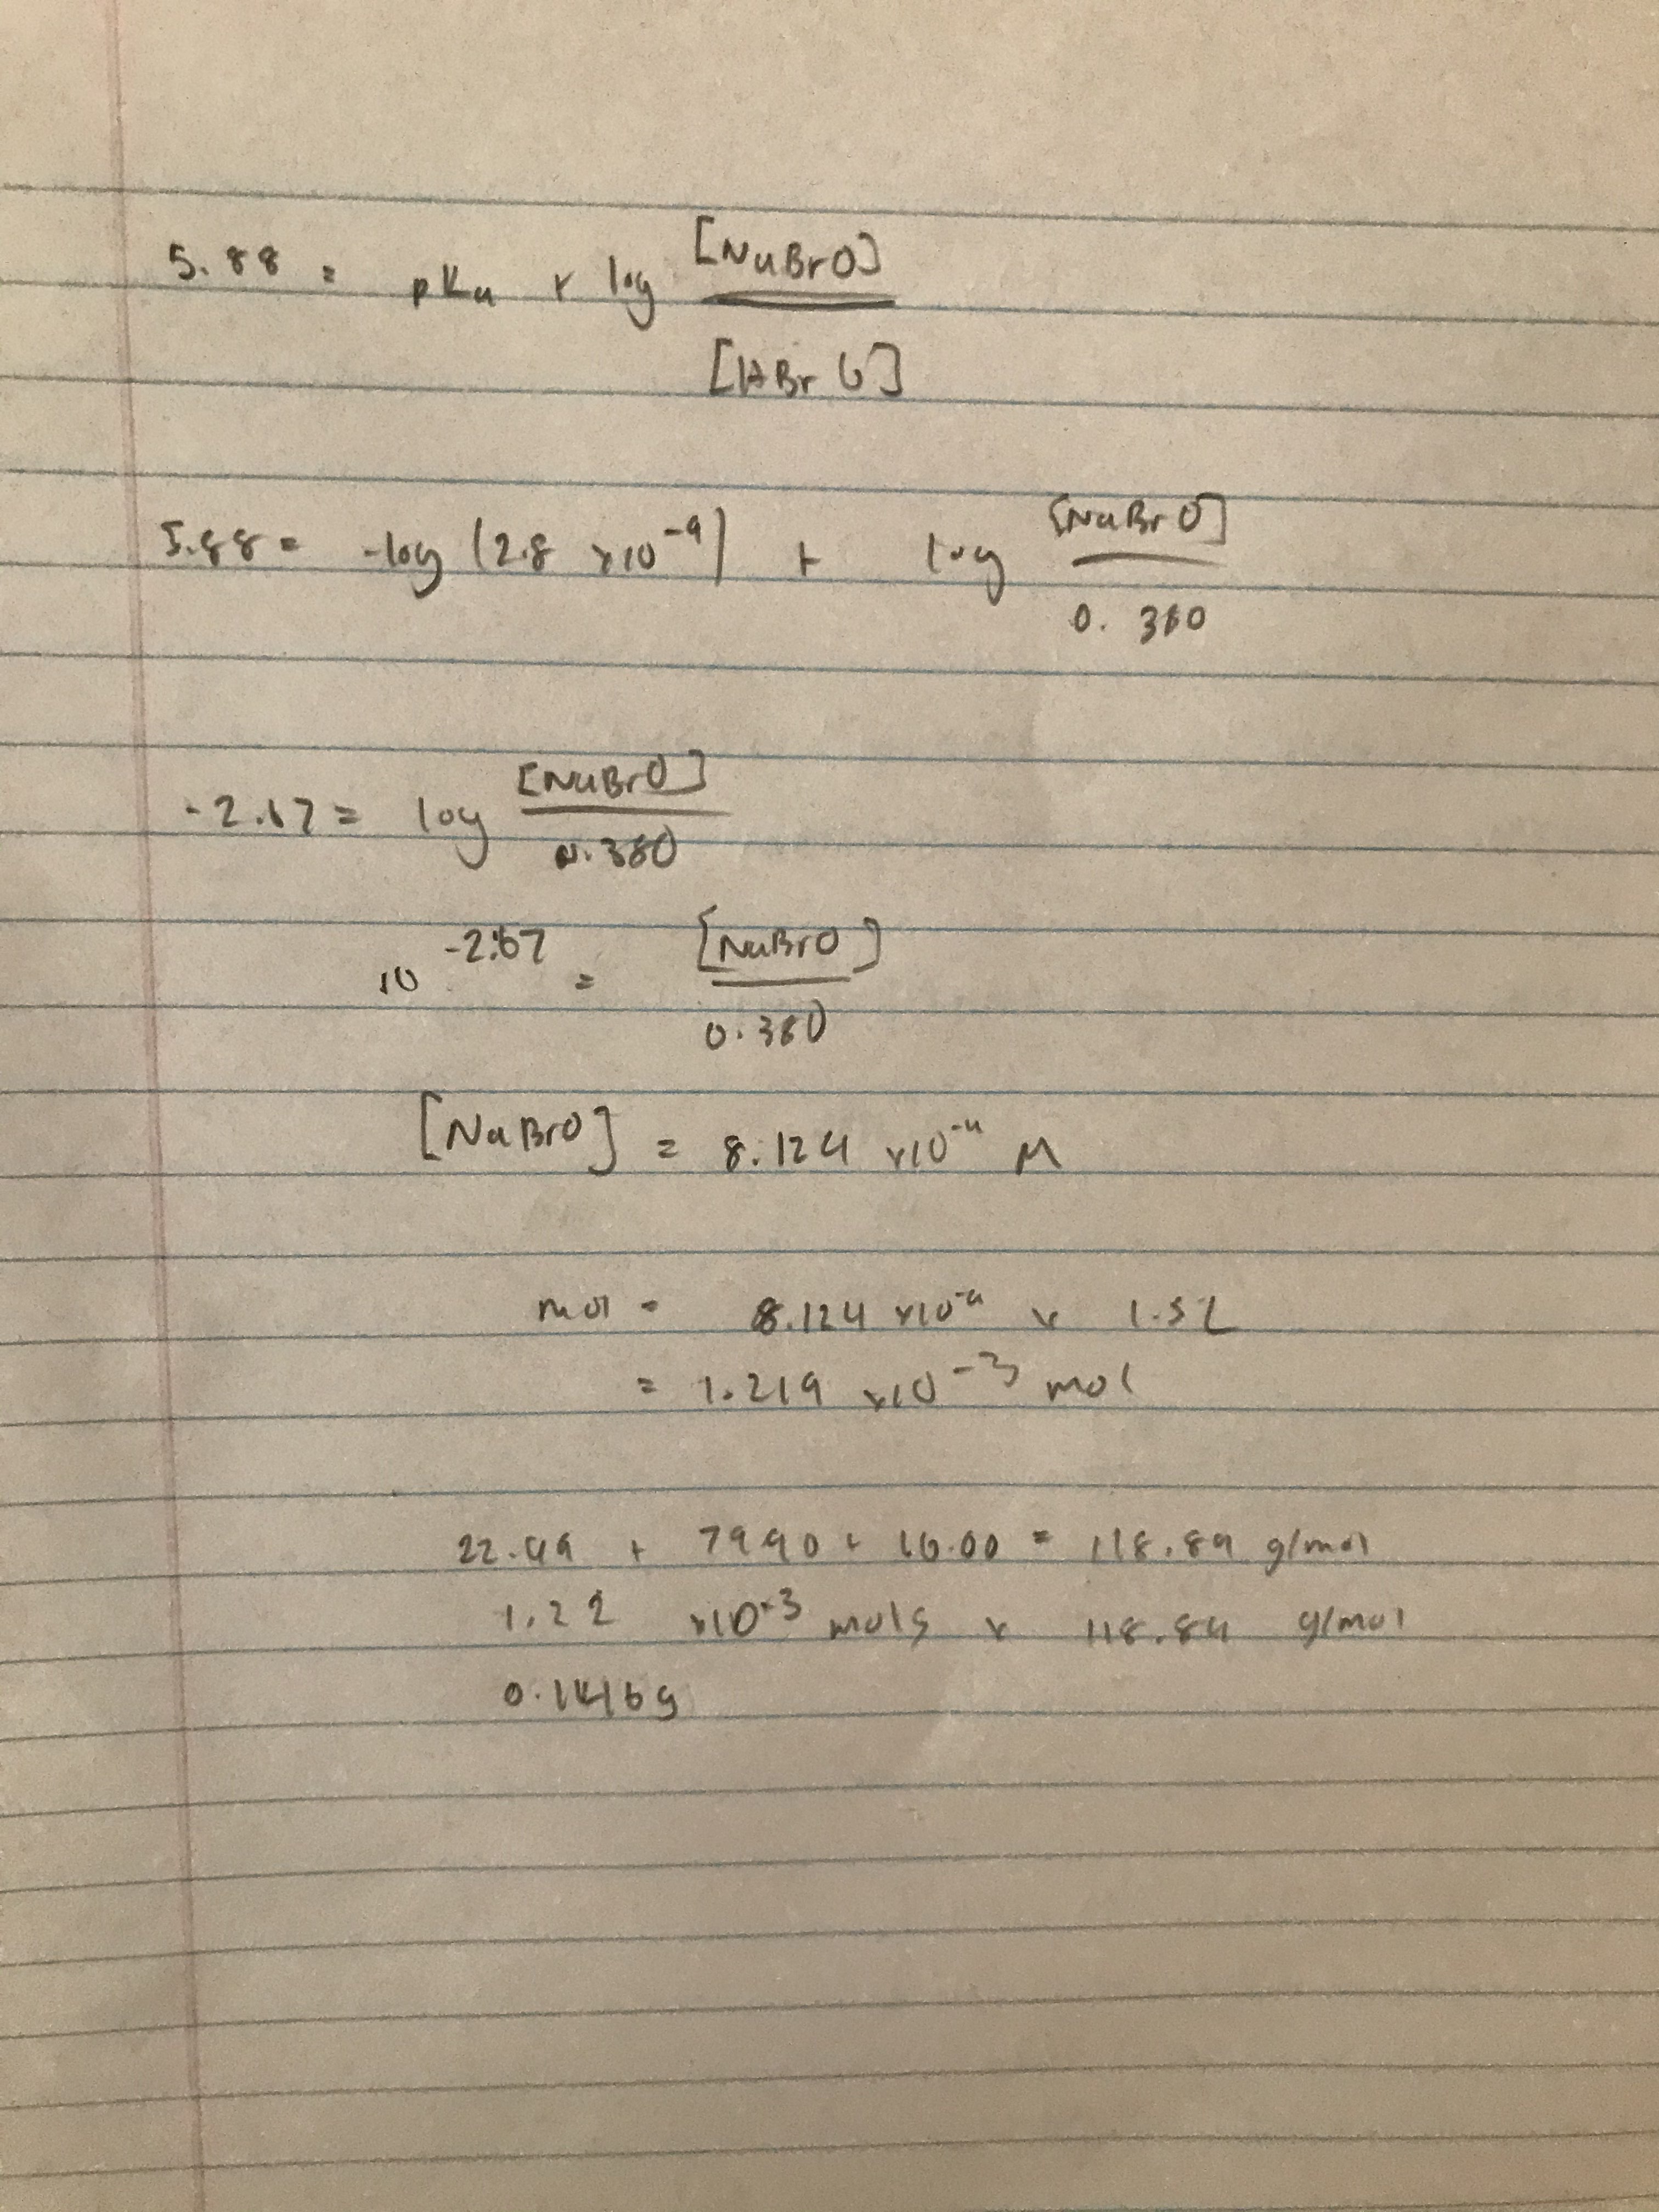 5.88 = pKa + log [NaBrO]
[HBrO]
5.88 = -log (2.8 x10^-9) + log [NaBrO]
0.380
-2.67 = log [NaBrO]
0.380
10^-2.67 = [NaBrO]
0.380
[NaBrO] = 8.124 x10^-4 M
mol = 8.124 x10^-4 x 1.5L
= 1.219 x10^-3 mol
22.99 + 79.90 + 16.00 = 118.89 g/mol
1.22 x10^-3 mols x 118.89 g/mol
0.1446g